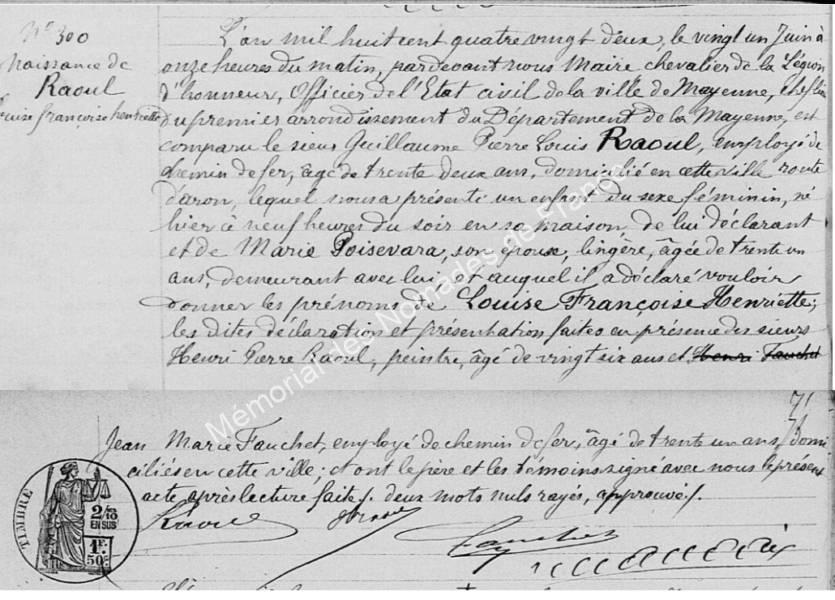 N° 300
Naissance de
Raoul
Louise françoise henriette
L'an mil huit cent quatre vingt deux, le vingt un Juin à
onze heures du matin, pardevant nous Maire chevalier de la Légion
d'honneur, Officier de l'Etat civil de la ville de Mayenne, chef lieu
du premier arrondissement du Département de la Mayenne, est
comparu le sieur Guillaume Pierre Louis Raoul, employé de
chemin de fer, âgé de trente deux ans, domicilié en cette ville route
d'aron, lequel nous a présenté un enfant du sexe féminin, né
hier à neuf heures du soir en sa maison, de lui déclarant
et de Marie Poisevara, son épouse, lingère, âgée de trente un
ans, demeurant avec lui, et auquel il a déclaré vouloir
donner les prénoms de Louise Françoise Henriette;
les dites déclaration et présentation faites en présence des sieurs
Henri Pierre Raoul, peintre, âgé de vingt six ans et Henri Fauchet
Jean Marie Fauchet, employé de chemin de fer, âgé de trente un ans, domi
ciliés en cette ville; et ont le père et les témoins signé avec nous le présent
acte, après lecture faite /. deux mots nuls rayés, approuvé /.
Raoul
Fauchet
TIMBRE
2/10
EN SUS
1F.
50c.
Mémorial des Nomades de France